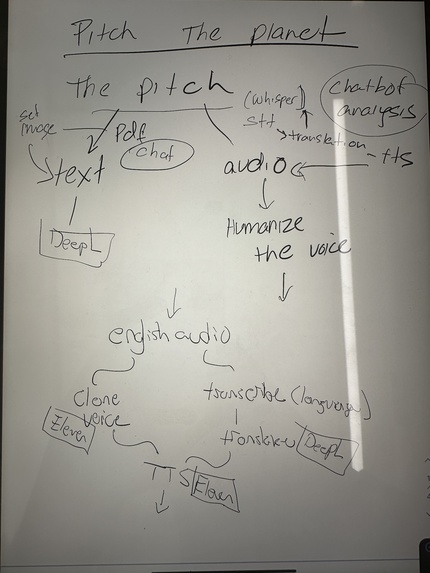 Pitch The planet
The pitch
(whisper)
stt
Chatbot
analysis
set
image
Pdf
chat
translation
text
audio
tts
DeepL
Humanize
the voice
english audio
Clone
voice
Eleven
transcribe (language)
translate
DeepL
TTS
Eleven